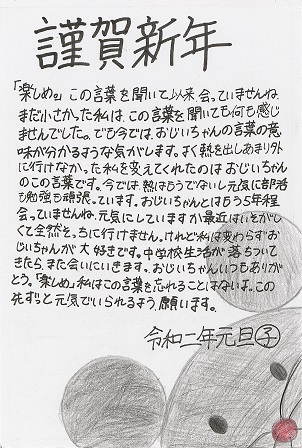 謹賀新年
「楽しめ。」この言葉を聞いて以来会っていませんね。
まだ小さかった私は、この言葉を聞いても何も感じ
ませんでした。でも今では、おじいちゃんの言葉の意
味が分かるような気がします。よく熱を出しあまり外
に行けなかった私を変えてくれたのはおじいちゃん
のこの言葉です。今では、熱はもうでないし元気に部活
も勉強も頑張っています。おじいちゃんとはもう5年程
会っていませんね。元気にしていますか最近はいそがし
くて全然そっちに行けません。けれど私は変わらずお
じいちゃんが大好きです。中学校生活が落ちついて
きたら、また会いにいきます。おじいちゃんいつもありが
とう。「楽しめ。」私はこの言葉を忘れることはないよ。この
先ずっと元気でいられるよう、願います。
令和二年元旦子